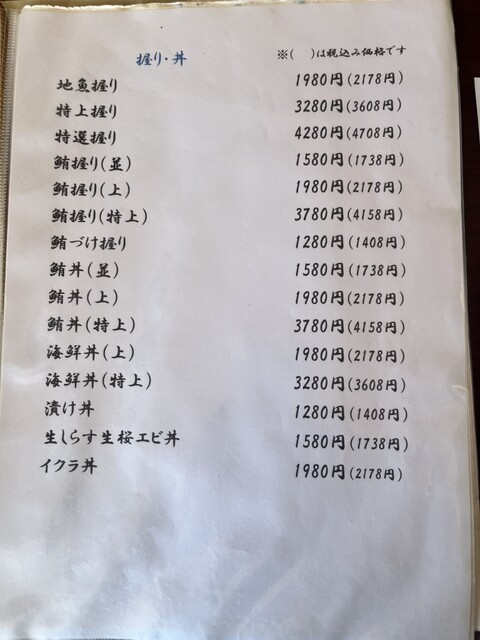 握り・丼 ※( )は税込み価格です
地魚握り 1980円(2178円)
特上握り 3280円(3608円)
特選握り 4280円(4708円)
鮪握り(並) 1580円(1738円)
鮪握り(上) 1980円(2178円)
鮪握り(特上) 3780円(4158円)
鮪づけ握り 1280円(1408円)
鮪丼(並) 1580円(1738円)
鮪丼(上) 1980円(2178円)
鮪丼(特上) 3780円(4158円)
海鮮丼(上) 1980円(2178円)
海鮮丼(特上) 3280円(3608円)
漬け丼 1280円(1408円)
生しらす生桜エビ丼 1580円(1738円)
イクラ丼 1980円(2178円)